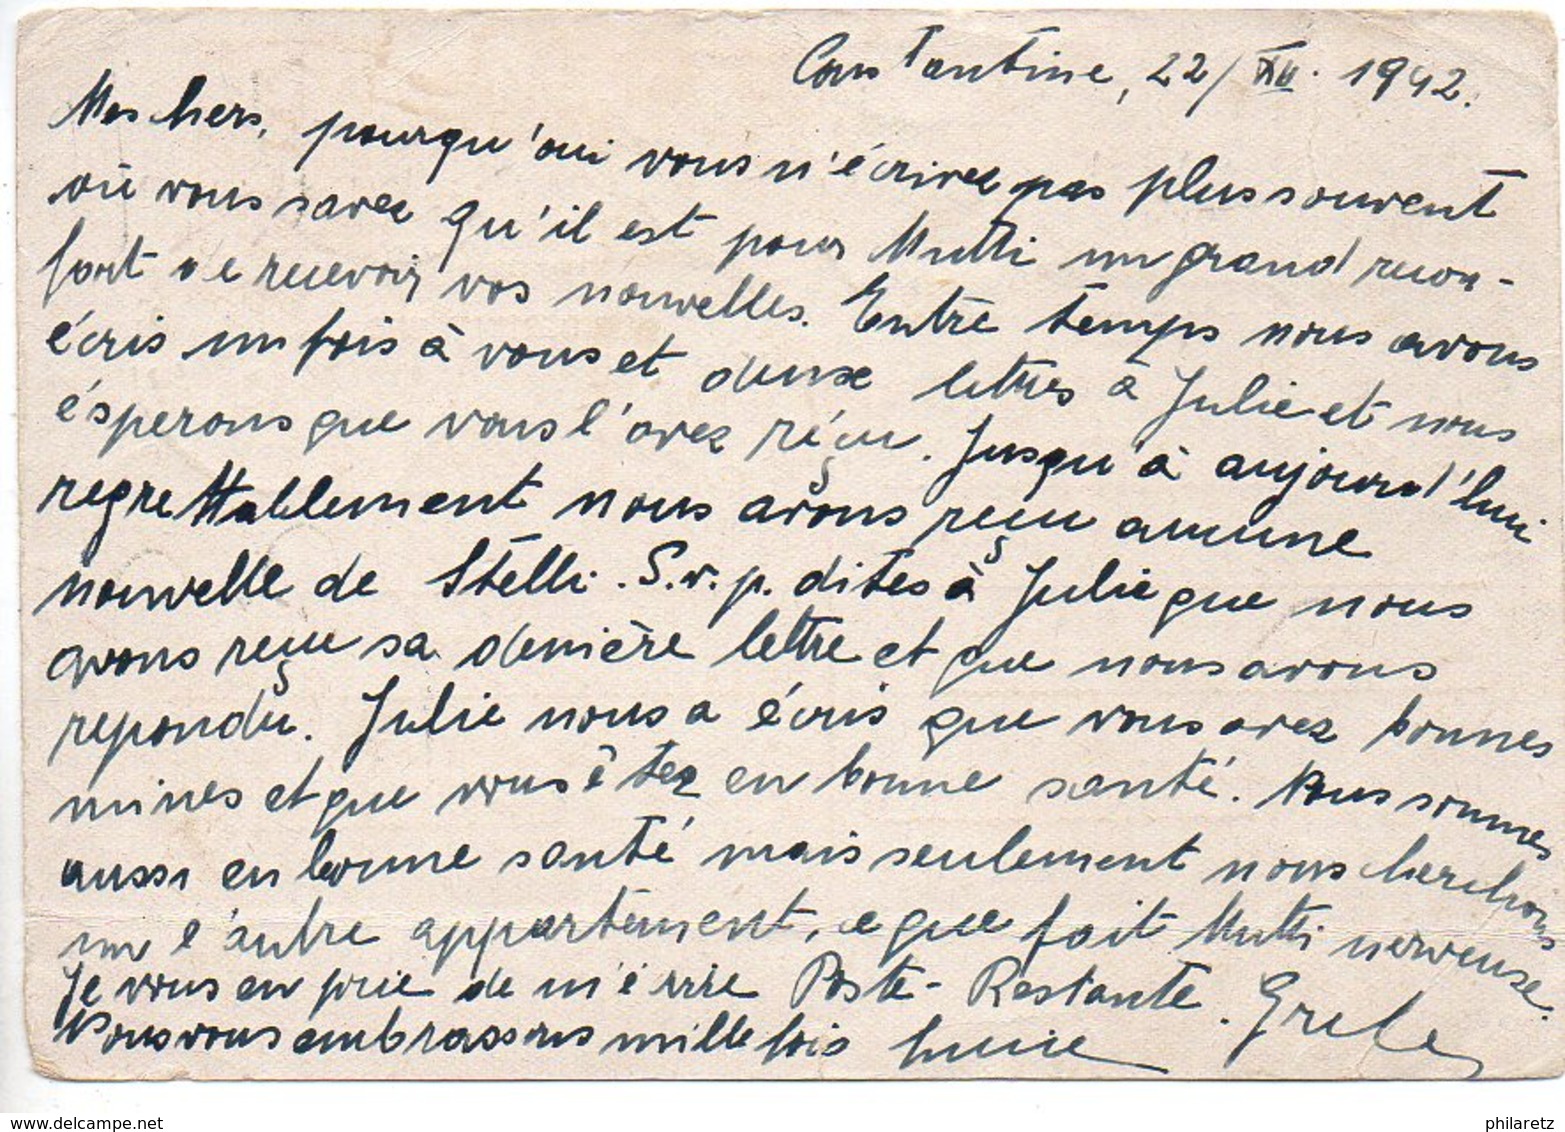 Constantine, 22/XII. 1942.
Mes chers, pourqu'oui vous n'écrivez pas plus souvent
où vous savez qu'il est pour Mutti un grand recon-
fort de recevoir vos nouvelles. Entre temps nous avons
écris un fois à vous et deux lettres à Julie et nous
ésperons que vous l'avez réçu. Jusqu'à aujourd'hui
regrettablement nous avons reçu aucune
nouvelle de Stelli. S.v.p. dites à Julie que nous
avons reçu sa dernière lettre et que nous avons
repondu. Julie nous a écris que vous avez bonnes
mines et que vous êtez en bonne santé. Nous sommes
aussi en bonne santé mais seulement nous cherchons
un l'autre appartement, ce que fait Mutti nerveuse.
Je vous en prie de m'écrire Poste-Restante. Grete
Nous vous embrassons mille fois
www.delcampe.net
philaretz